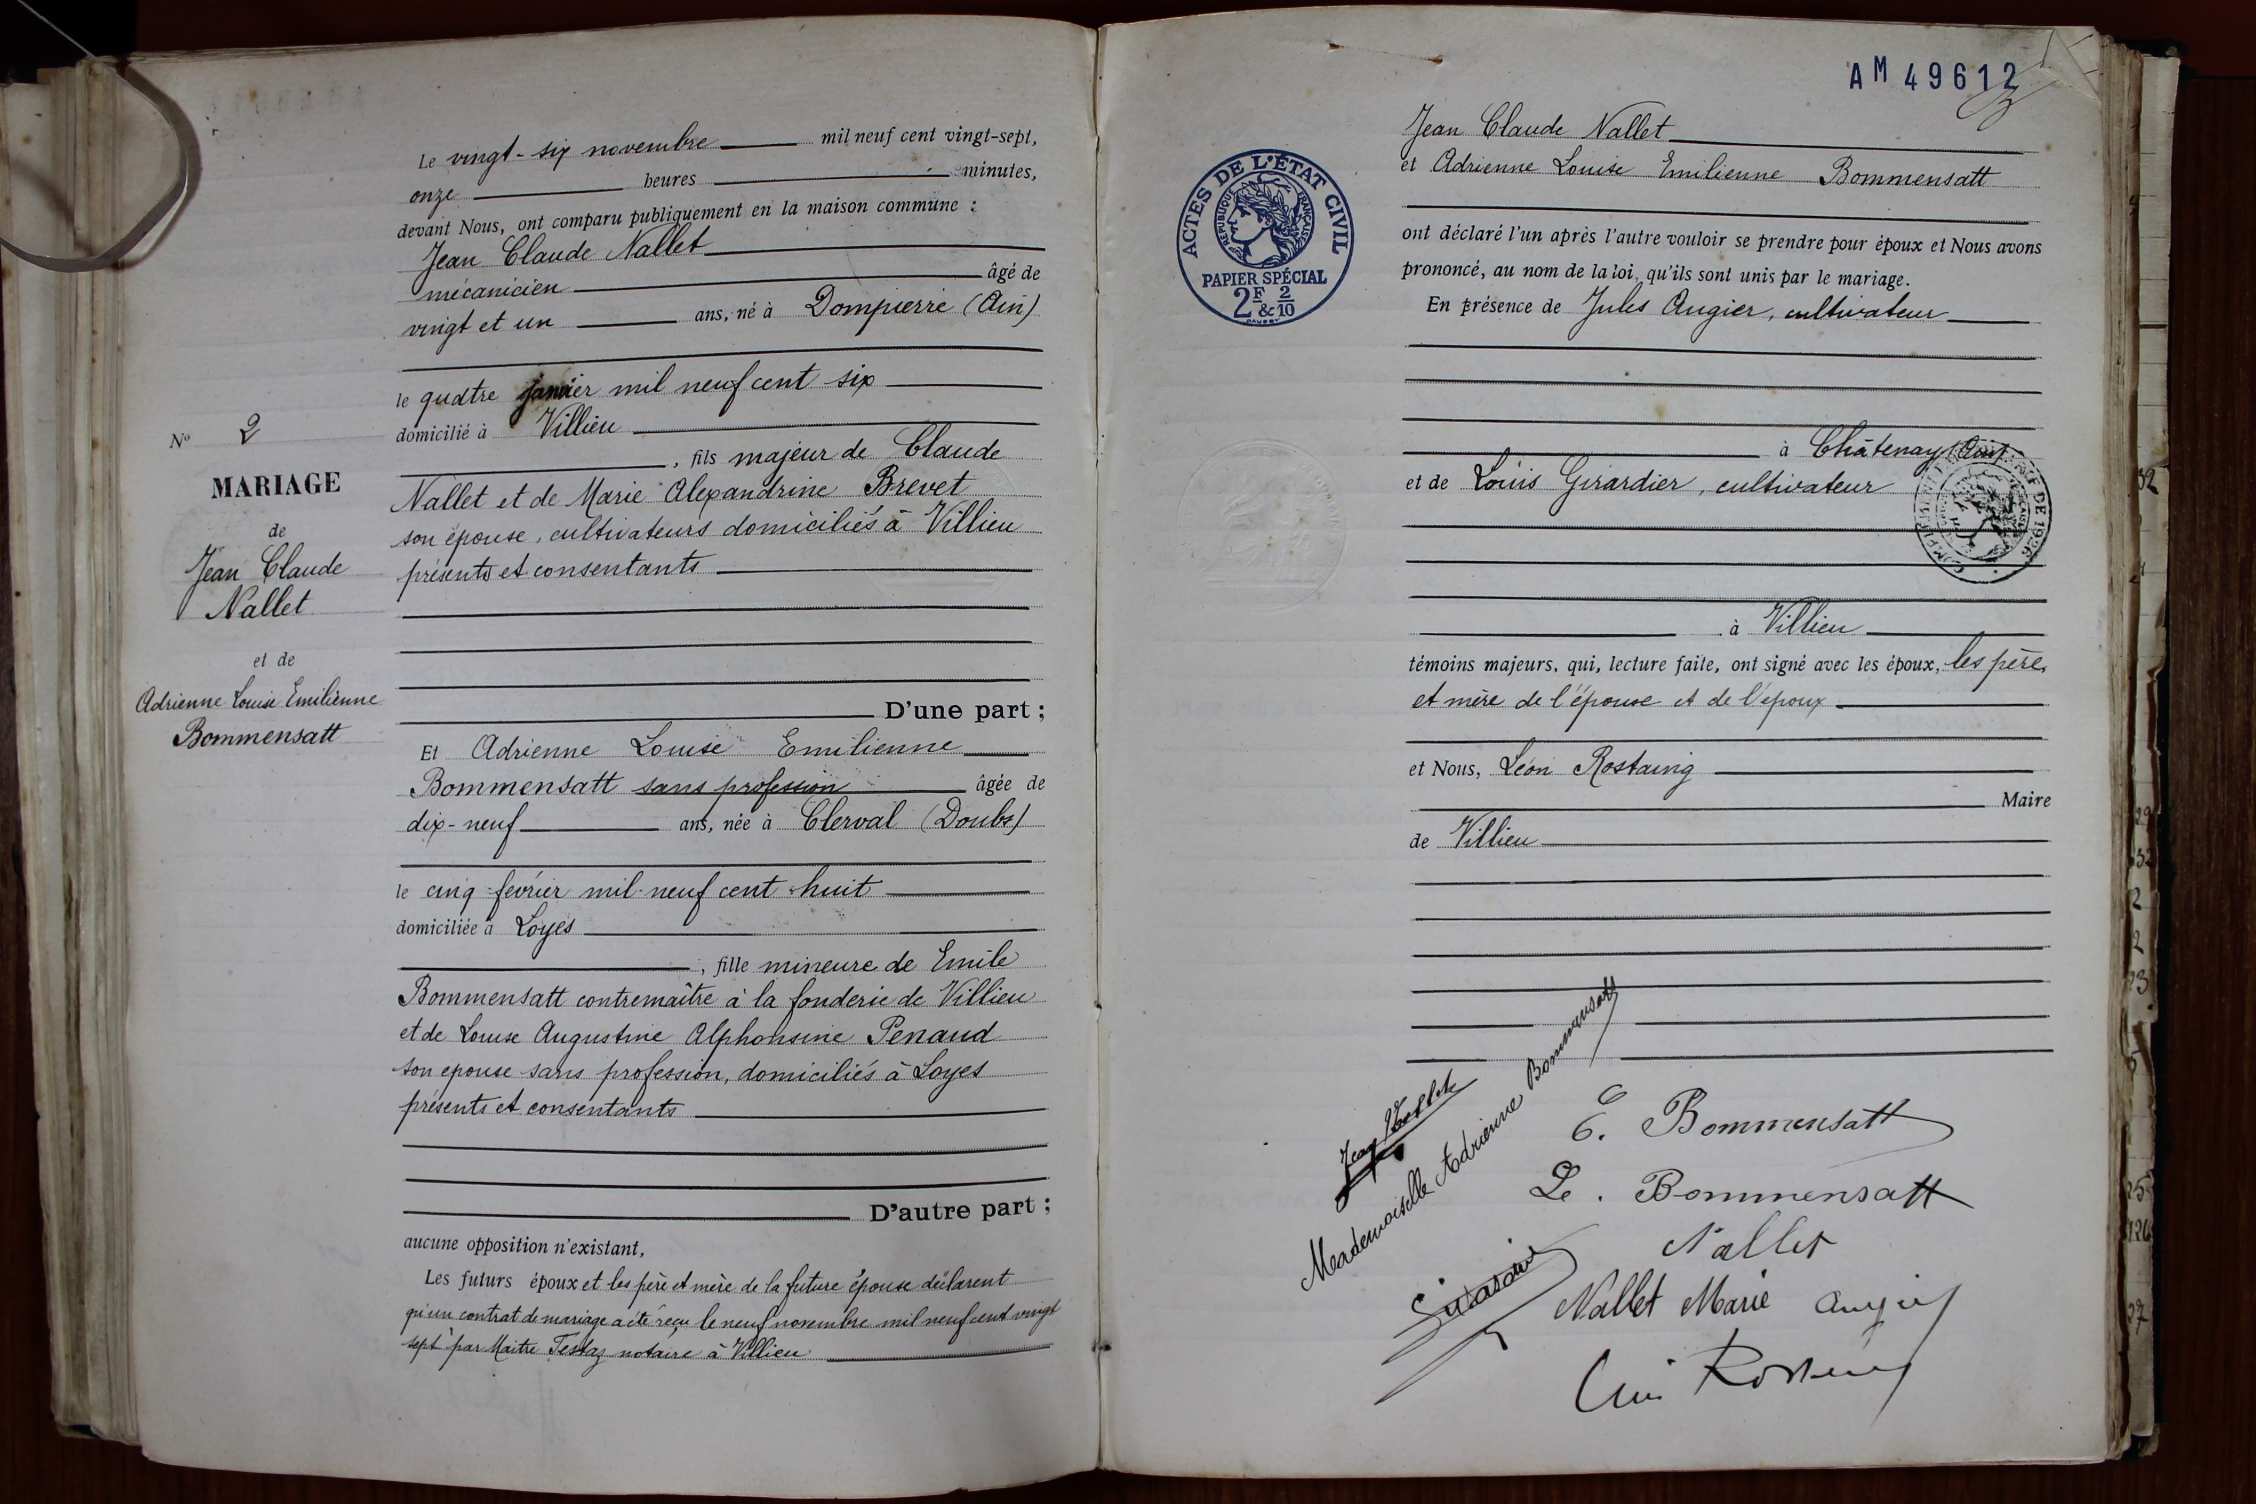 Le vingt-six novembre mil neuf cent vingt-sept,
onze heures minutes,
devant Nous, ont comparu publiquement en la maison commune :
Jean Claude Nallet
mécanicien âgé de
vingt et un ans, né à Dompierre (Ain)
le quatre janvier mil neuf cent six
domicilié à Villieu
, fils majeur de Claude
Nallet et de Marie Alexandrine Brevet
son épouse, cultivateurs domiciliés à Villieu
présents et consentants
D'une part ;
Et Adrienne Louise Emilienne
Bommensatt sans profession âgée de
dix-neuf ans, née à Clerval (Doubs)
le cinq février mil neuf cent huit
domiciliée à Loyes
, fille mineure de Emile
Bommensatt contremaître à la fonderie de Villieu
et de Louise Augustine Alphonsine Penaud
son épouse sans profession, domiciliés à Loyes
présents et consentants
D'autre part ;
aucune opposition n'existant,
Les futurs époux et les père et mère de la future épouse déclarent
qu'un contrat de mariage a été reçu le neuf novembre mil neuf cent vingt
sept par Maître Testaz notaire à Villieu
N° 2
MARIAGE
de
Jean Claude
Nallet
et de
Adrienne Louise Emilienne
Bommensatt
AM 49612
ACTES DE L'ÉTAT CIVIL
RÉPUBLIQUE FRANÇAISE
PAPIER SPÉCIAL
2F & 2/10
Jean Claude Nallet
et Adrienne Louise Emilienne Bommensatt
ont déclaré l'un après l'autre vouloir se prendre pour époux et Nous avons
prononcé, au nom de la loi, qu'ils sont unis par le mariage.
En présence de Jules Augier, cultivateur
à Châtenay (Ain)
et de Louis Girardier, cultivateur
DE 1926
à Villieu
témoins majeurs, qui, lecture faite, ont signé avec les époux, les père
et mère de l'épouse et de l'époux
et Nous, Léon Rostaing
Maire
de Villieu
Jean Nallet
Mademoiselle Adrienne Bommensatt
E. Bommensatt
L. Bommensatt
Nallet
Nallet Marie Augier